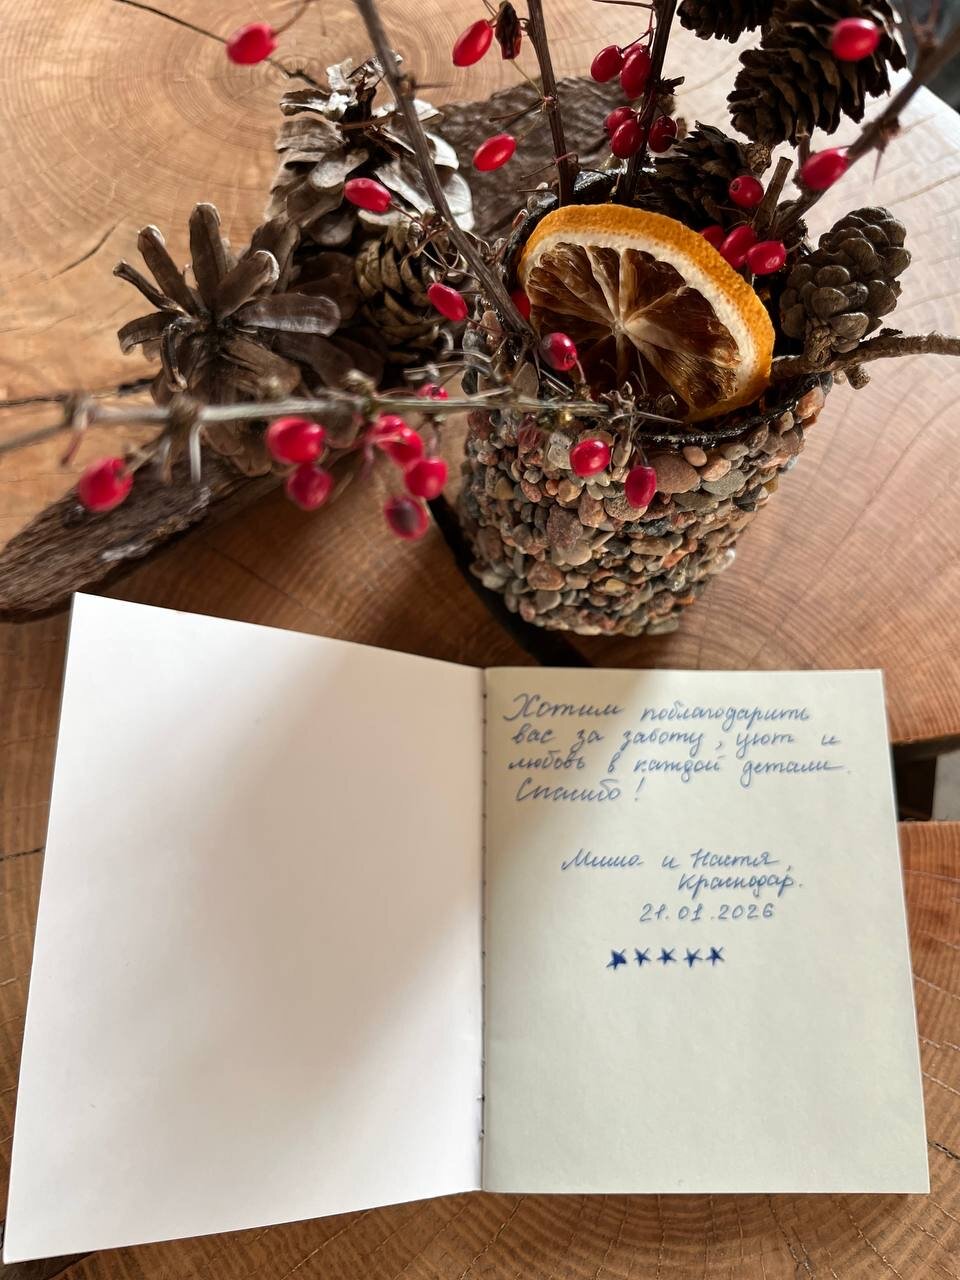 Хотим поблагодарить
вас за заботу, уют и
любовь в каждой детали.
Спасибо!
Миша и Настя,
Краснодар.
21.01.2026
★★★★★